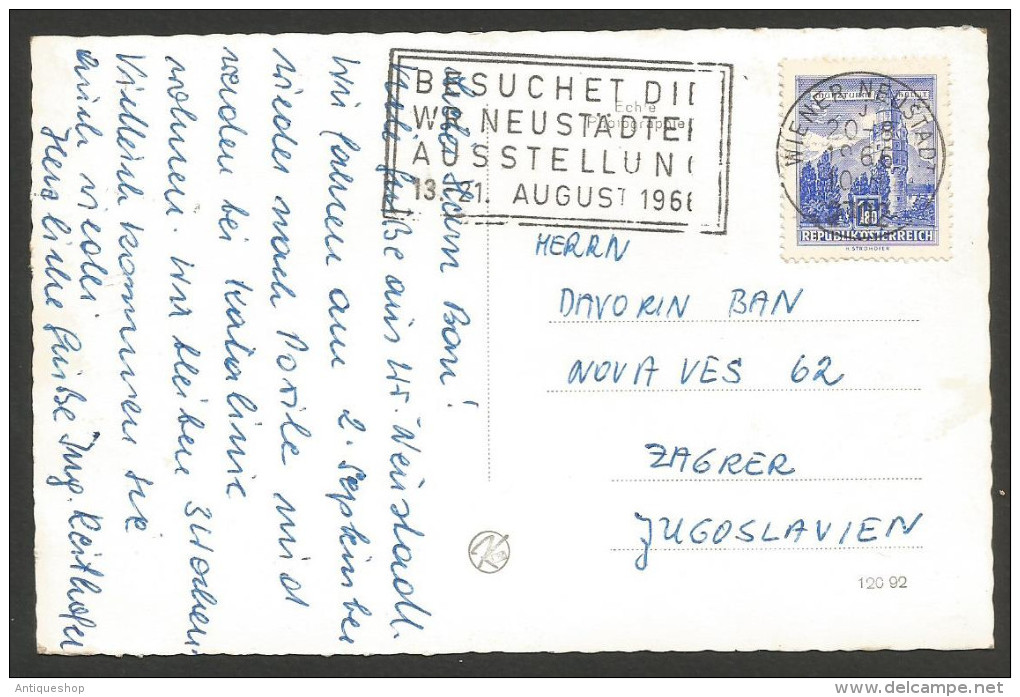 BESUCHET DIE
WR. NEUSTÄDTER
AUSSTELLUNG
13.-21. AUGUST 1966
Echte
Photographie
WIENER NEUSTADT
20-8
REPUBLIK ÖSTERREICH
H. STROHOFER
Ban!
Viele Grüße aus Wr. Neustadt.
Wir fahren am 2. September
wieder nach und
werden bei
wohnen. Wir bleiben 3 Wochen.
Vielleich kommen Sie
auch
Herzliche Grüße Ing. Reithofer
HERRN
DAVORIN BAN
NOVA VES 62
ZAGRER
JUGOSLAVIEN
120 92
Antiqueshop
www.delcampe.net